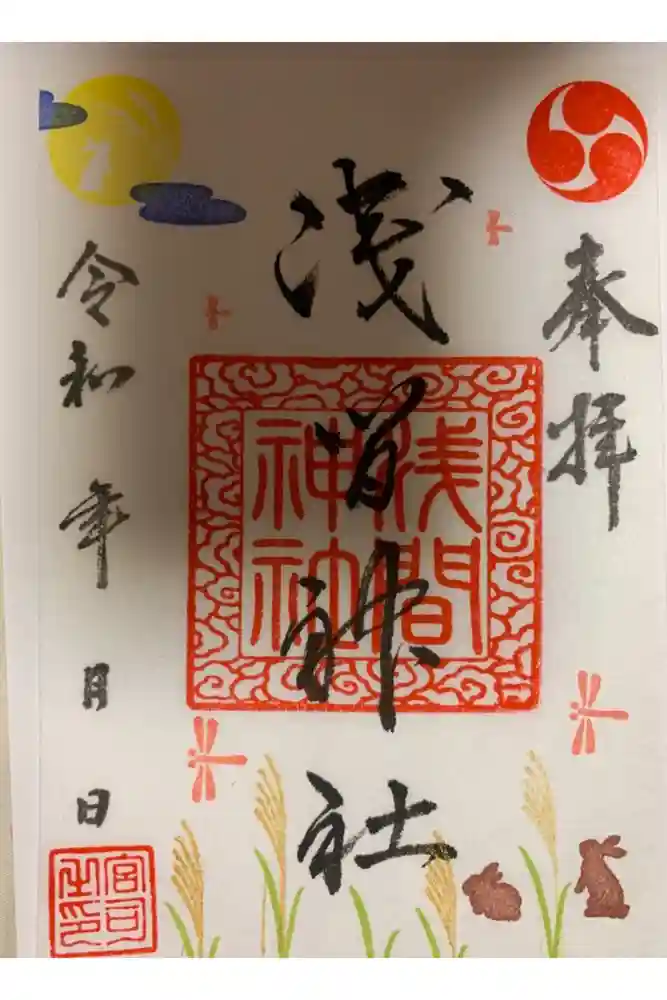 奉拝
浅間神社
浅間
神社
令和 年 月 日
宮司
之印